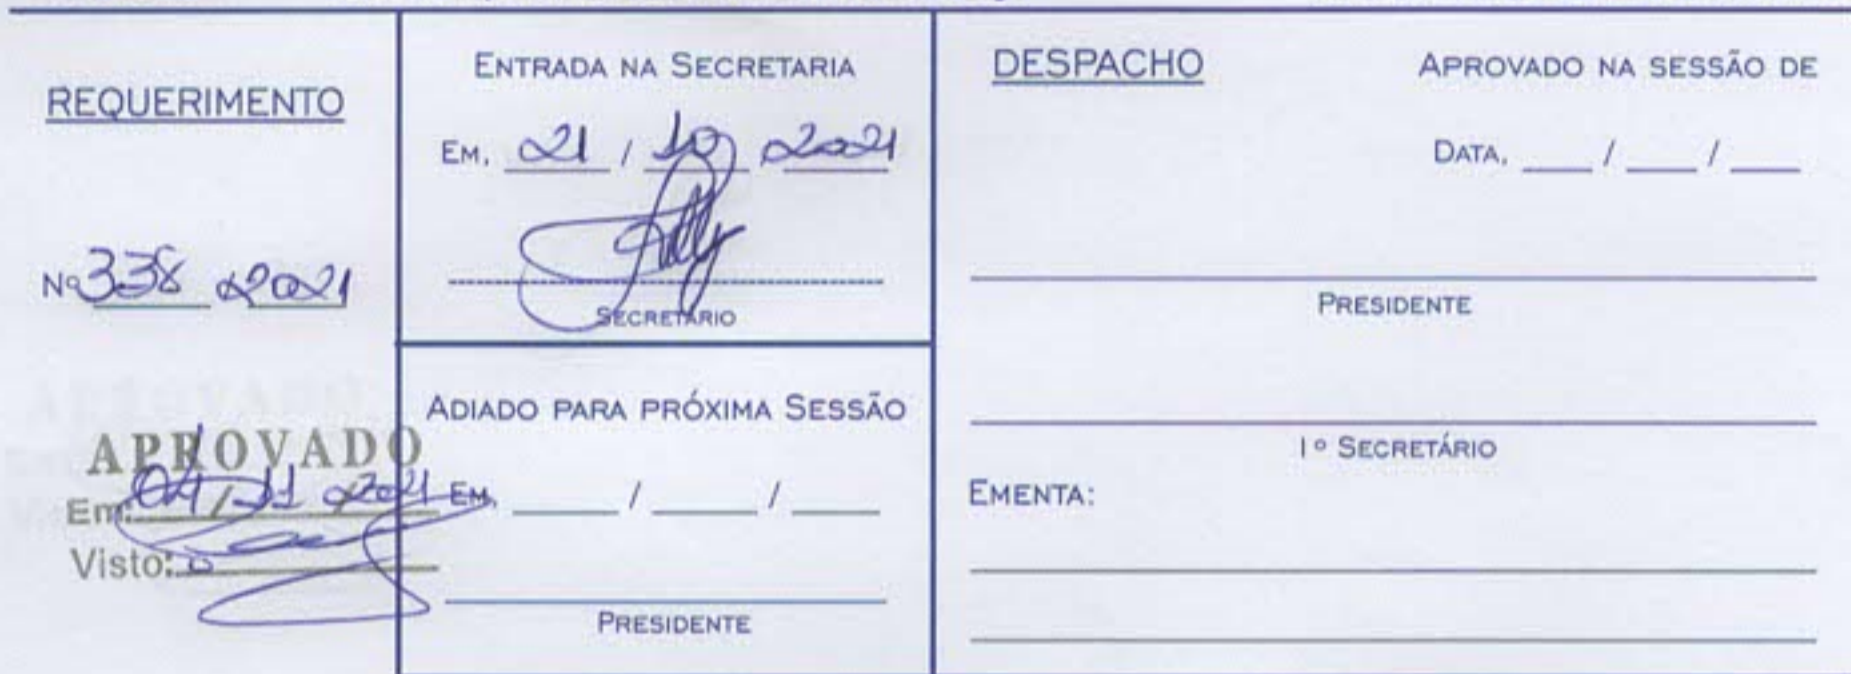 REQUERIMENTO
Nº 338 2021
APROVADO
Em: 04/11 2021
Visto:
ENTRADA NA SECRETARIA
EM, 21 / 10 2021
SECRETÁRIO
ADIADO PARA PRÓXIMA SESSÃO
EM, ____ / ____ / ____
PRESIDENTE
DESPACHO
APROVADO NA SESSÃO DE
DATA, ___ / ___ / ___
PRESIDENTE
1º SECRETÁRIO
EMENTA: